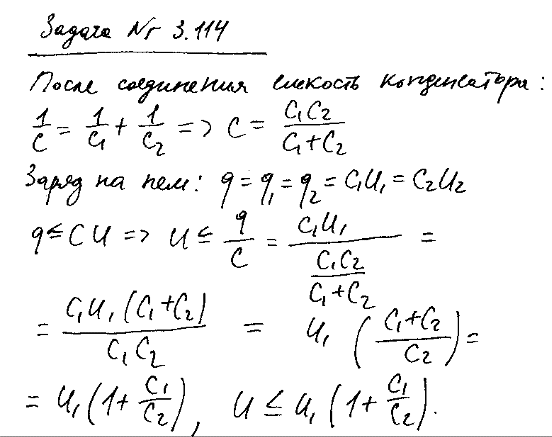 Задача № 3.114
После соединения емкость конденсатора:
1/C = 1/C₁ + 1/C₂ => C = C₁C₂/(C₁+C₂)
Заряд на нем: q = q₁ = q₂ = C₁U₁ = C₂U₂
q ≤ CU => U ≤ q/C = C₁U₁/(C₁C₂/(C₁+C₂)) =
= C₁U₁(C₁+C₂)/(C₁C₂) = U₁((C₁+C₂)/C₂) =
= U₁(1+C₁/C₂), U ≤ U₁(1+C₁/C₂).